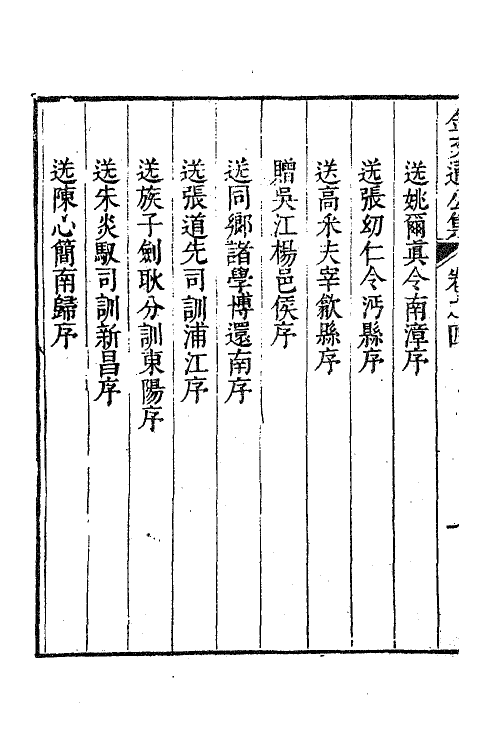 卷之四
送姚爾真令南漳序
送張幼仁令沔縣序
送高釆夫宰歙縣序
贈吳江楊邑侯序
送同鄉諸學博還南序
送張道先司訓浦江序
送族子劍耿分訓東陽序
送朱炎馭司訓新昌序
送陳心簡南歸序